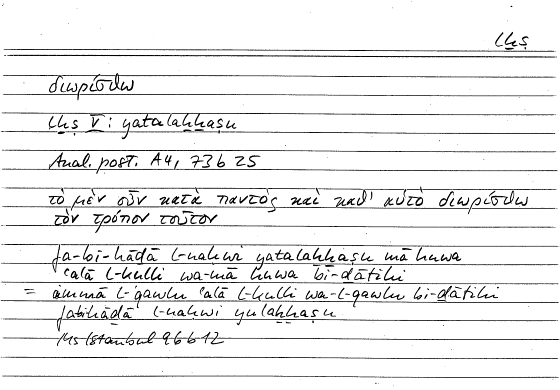 lḫṣ
διωρίσθω
lḫṣ V: yatalaḫḫaṣu
Anal. post. A4, 73b25
τὸ μὲν οὖν κατὰ παντὸς καὶ καθ' αὑτὸ διωρίσθω
τὸν τρόπον τοῦτον
fa-bi-hāḏā l-naḥwi yatalaḫḫaṣu mā huwa
ʿalā l-kulli wa-mā huwa bi-ḏātihi
= ammā l-qawlu ʿalā l-kulli wa-l-qawlu bi-ḏātihi
fabihāḏā l-naḥwi yulaḫḫaṣu
Ms Istanbul 96b12